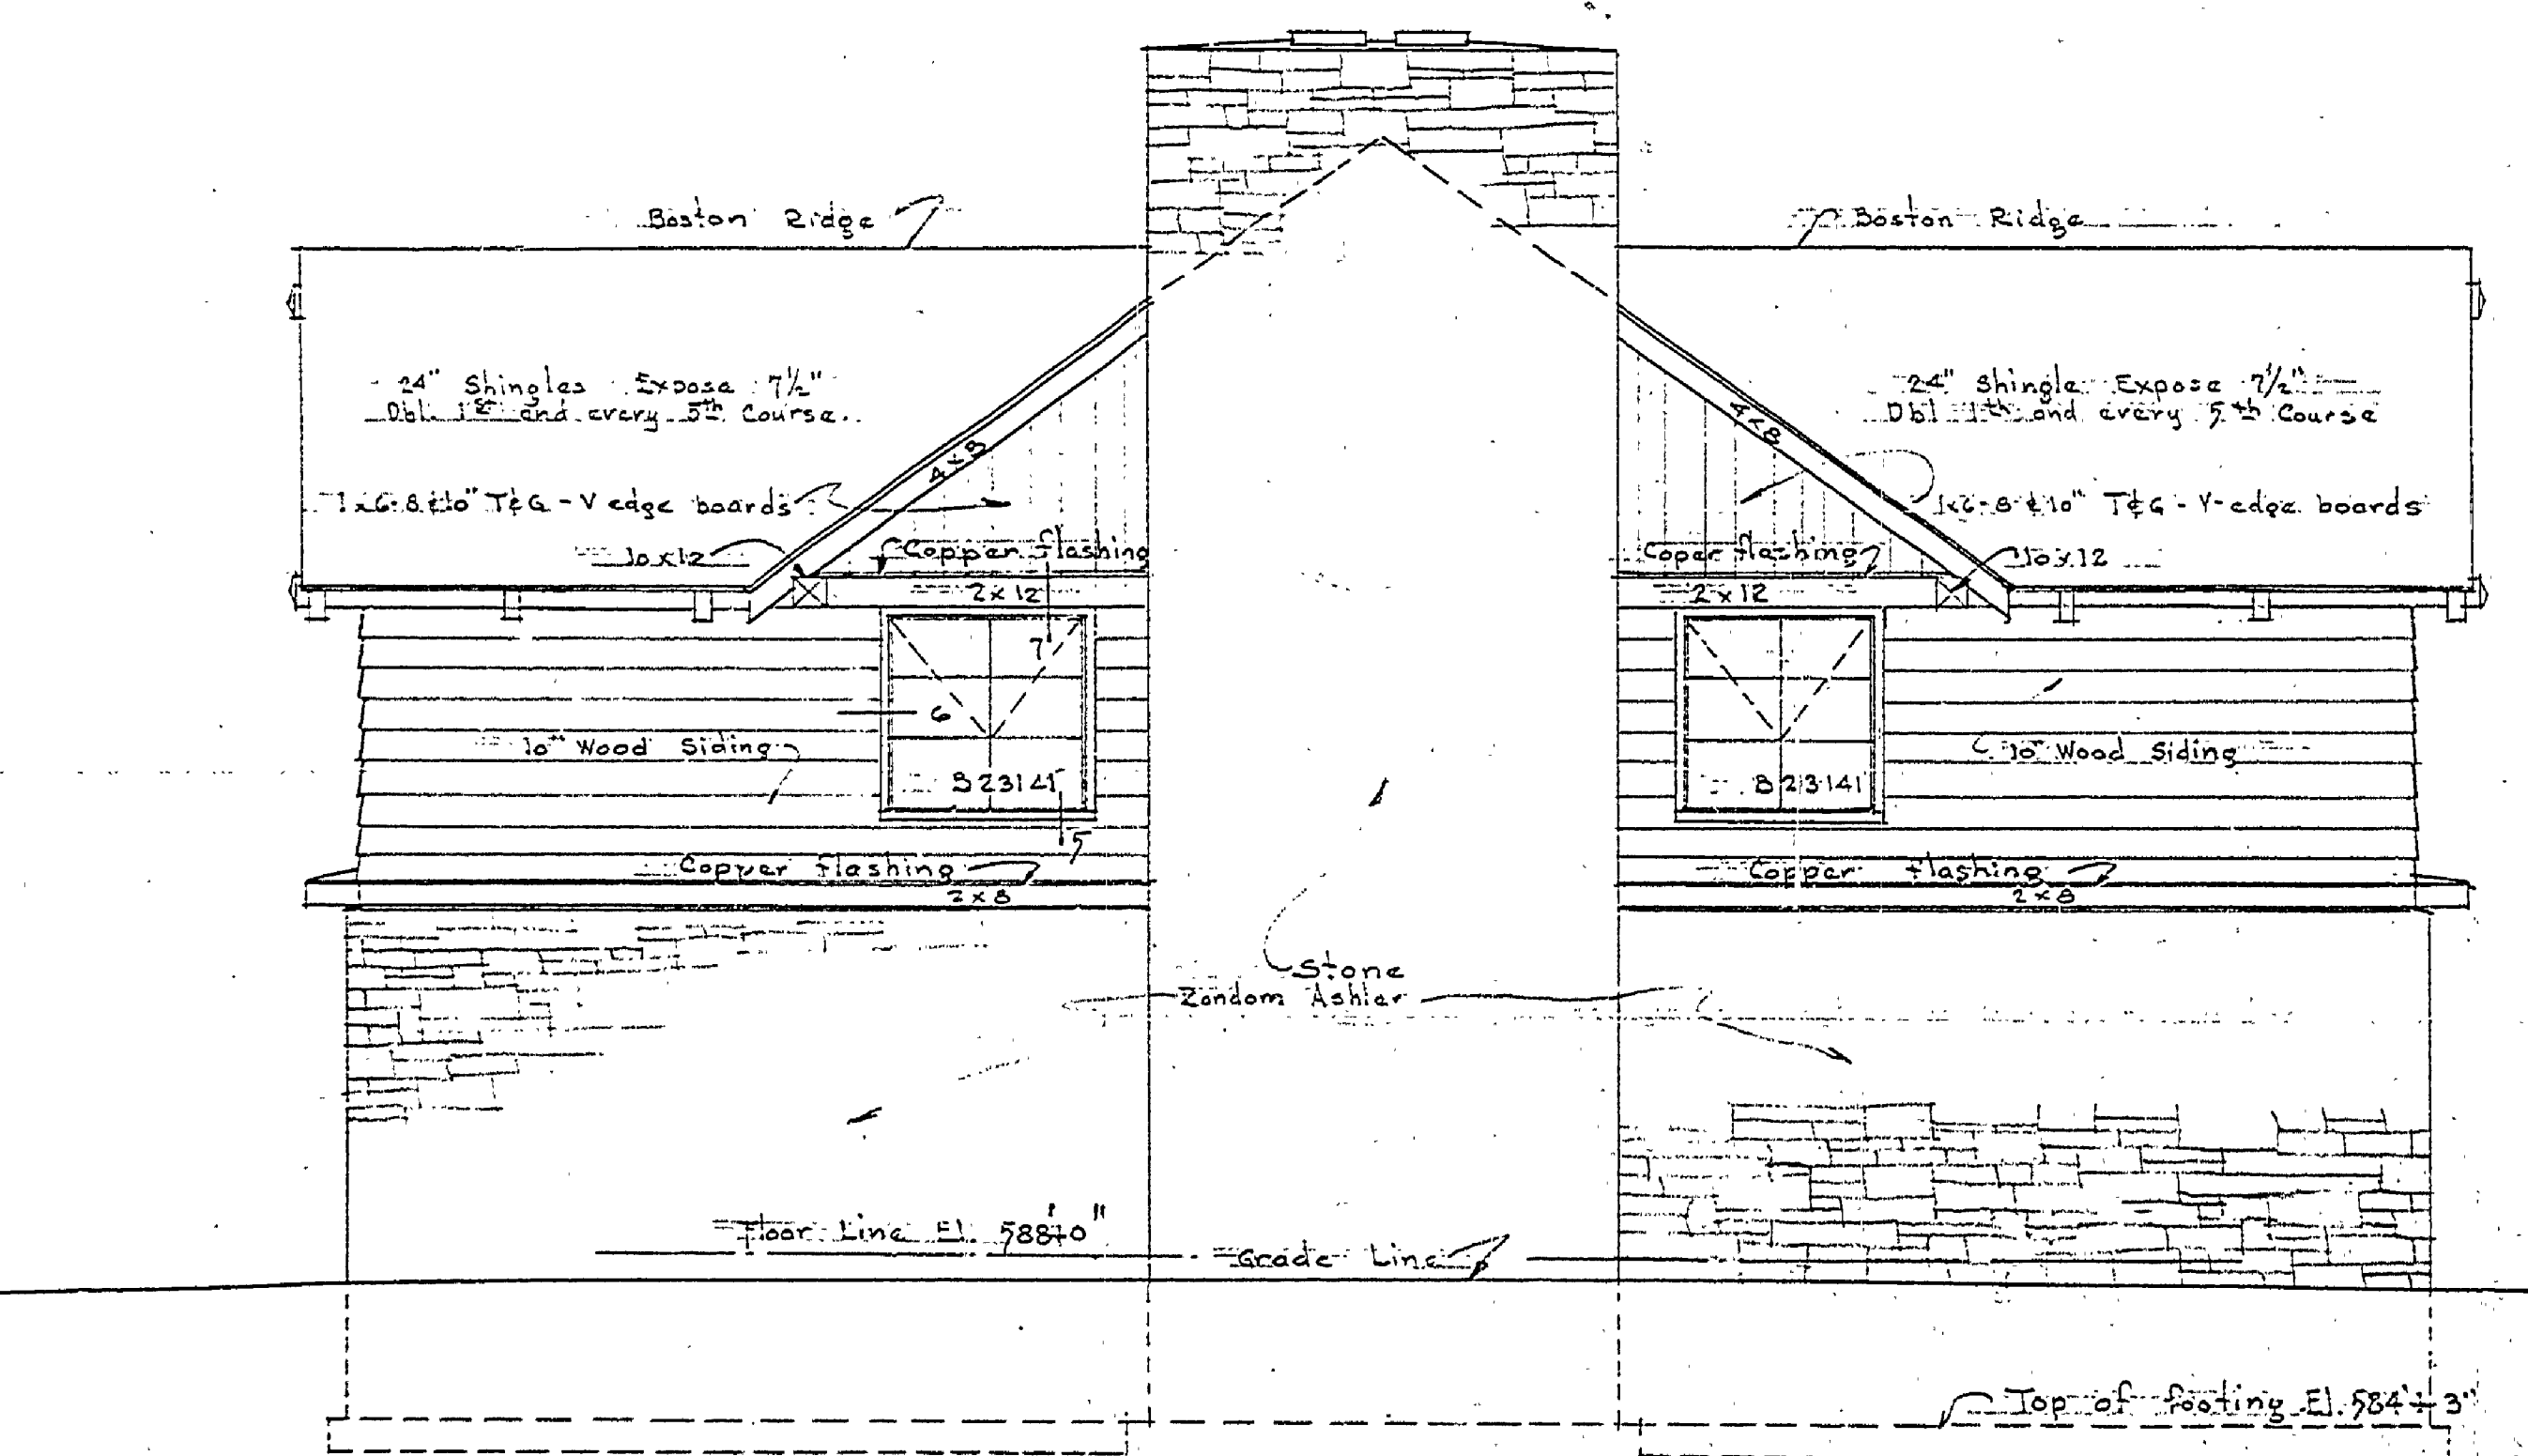 Boston Ridge
Boston Ridge
24" Shingles Expose 7½"
Dbl. 1st and every 5th Course.
24" Shingle Expose 7½"
Dbl 1th and every 5th Course
4x8
4x8
1x6-8&10" T&G - V edge boards
1x6-8&10" T&G - V-edge boards
10x12
Copper flashing
Coper flashing
10x12
2x12
2x12
7
6
10" Wood Siding
10" Wood Siding
B23141
B23141
5
Copper flashing
Copper flashing
2x8
2x8
Stone
Random Ashler
Floor Line El. 588'+0"
Grade Line
Top of footing El. 584'+3"